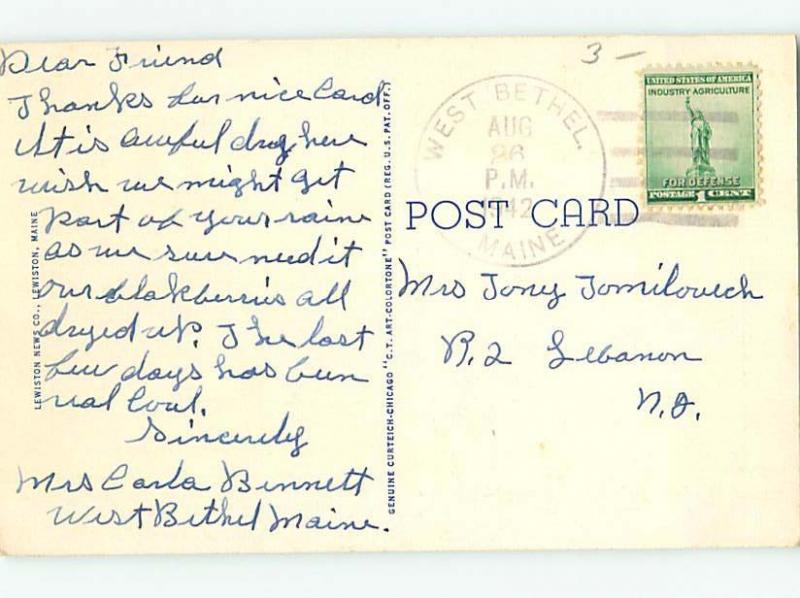 Dear Friend
Thanks for nice Card
It is awful dry here
wish we might get
part of your raine
as we sure need it
our blakberris all
dryed up. The last
few days has been
real cool.
Sincerely
Mrs Carla Bennett
West Bethel Maine.
LEWISTON NEWS CO., LEWISTON, MAINE
GENUINE CURTEICH-CHICAGO "C.T. ART-COLORTONE" POST CARD (REG. U.S. PAT. OFF.)
3 –
WEST BETHEL,
AUG
26
P.M.
1942
MAINE
UNITED STATES OF AMERICA
INDUSTRY AGRICULTURE
FOR DEFENSE
POSTAGE 1 CENT
POST CARD
Mrs Tony Tomilovech
R. 2 Lebanon
N.J.